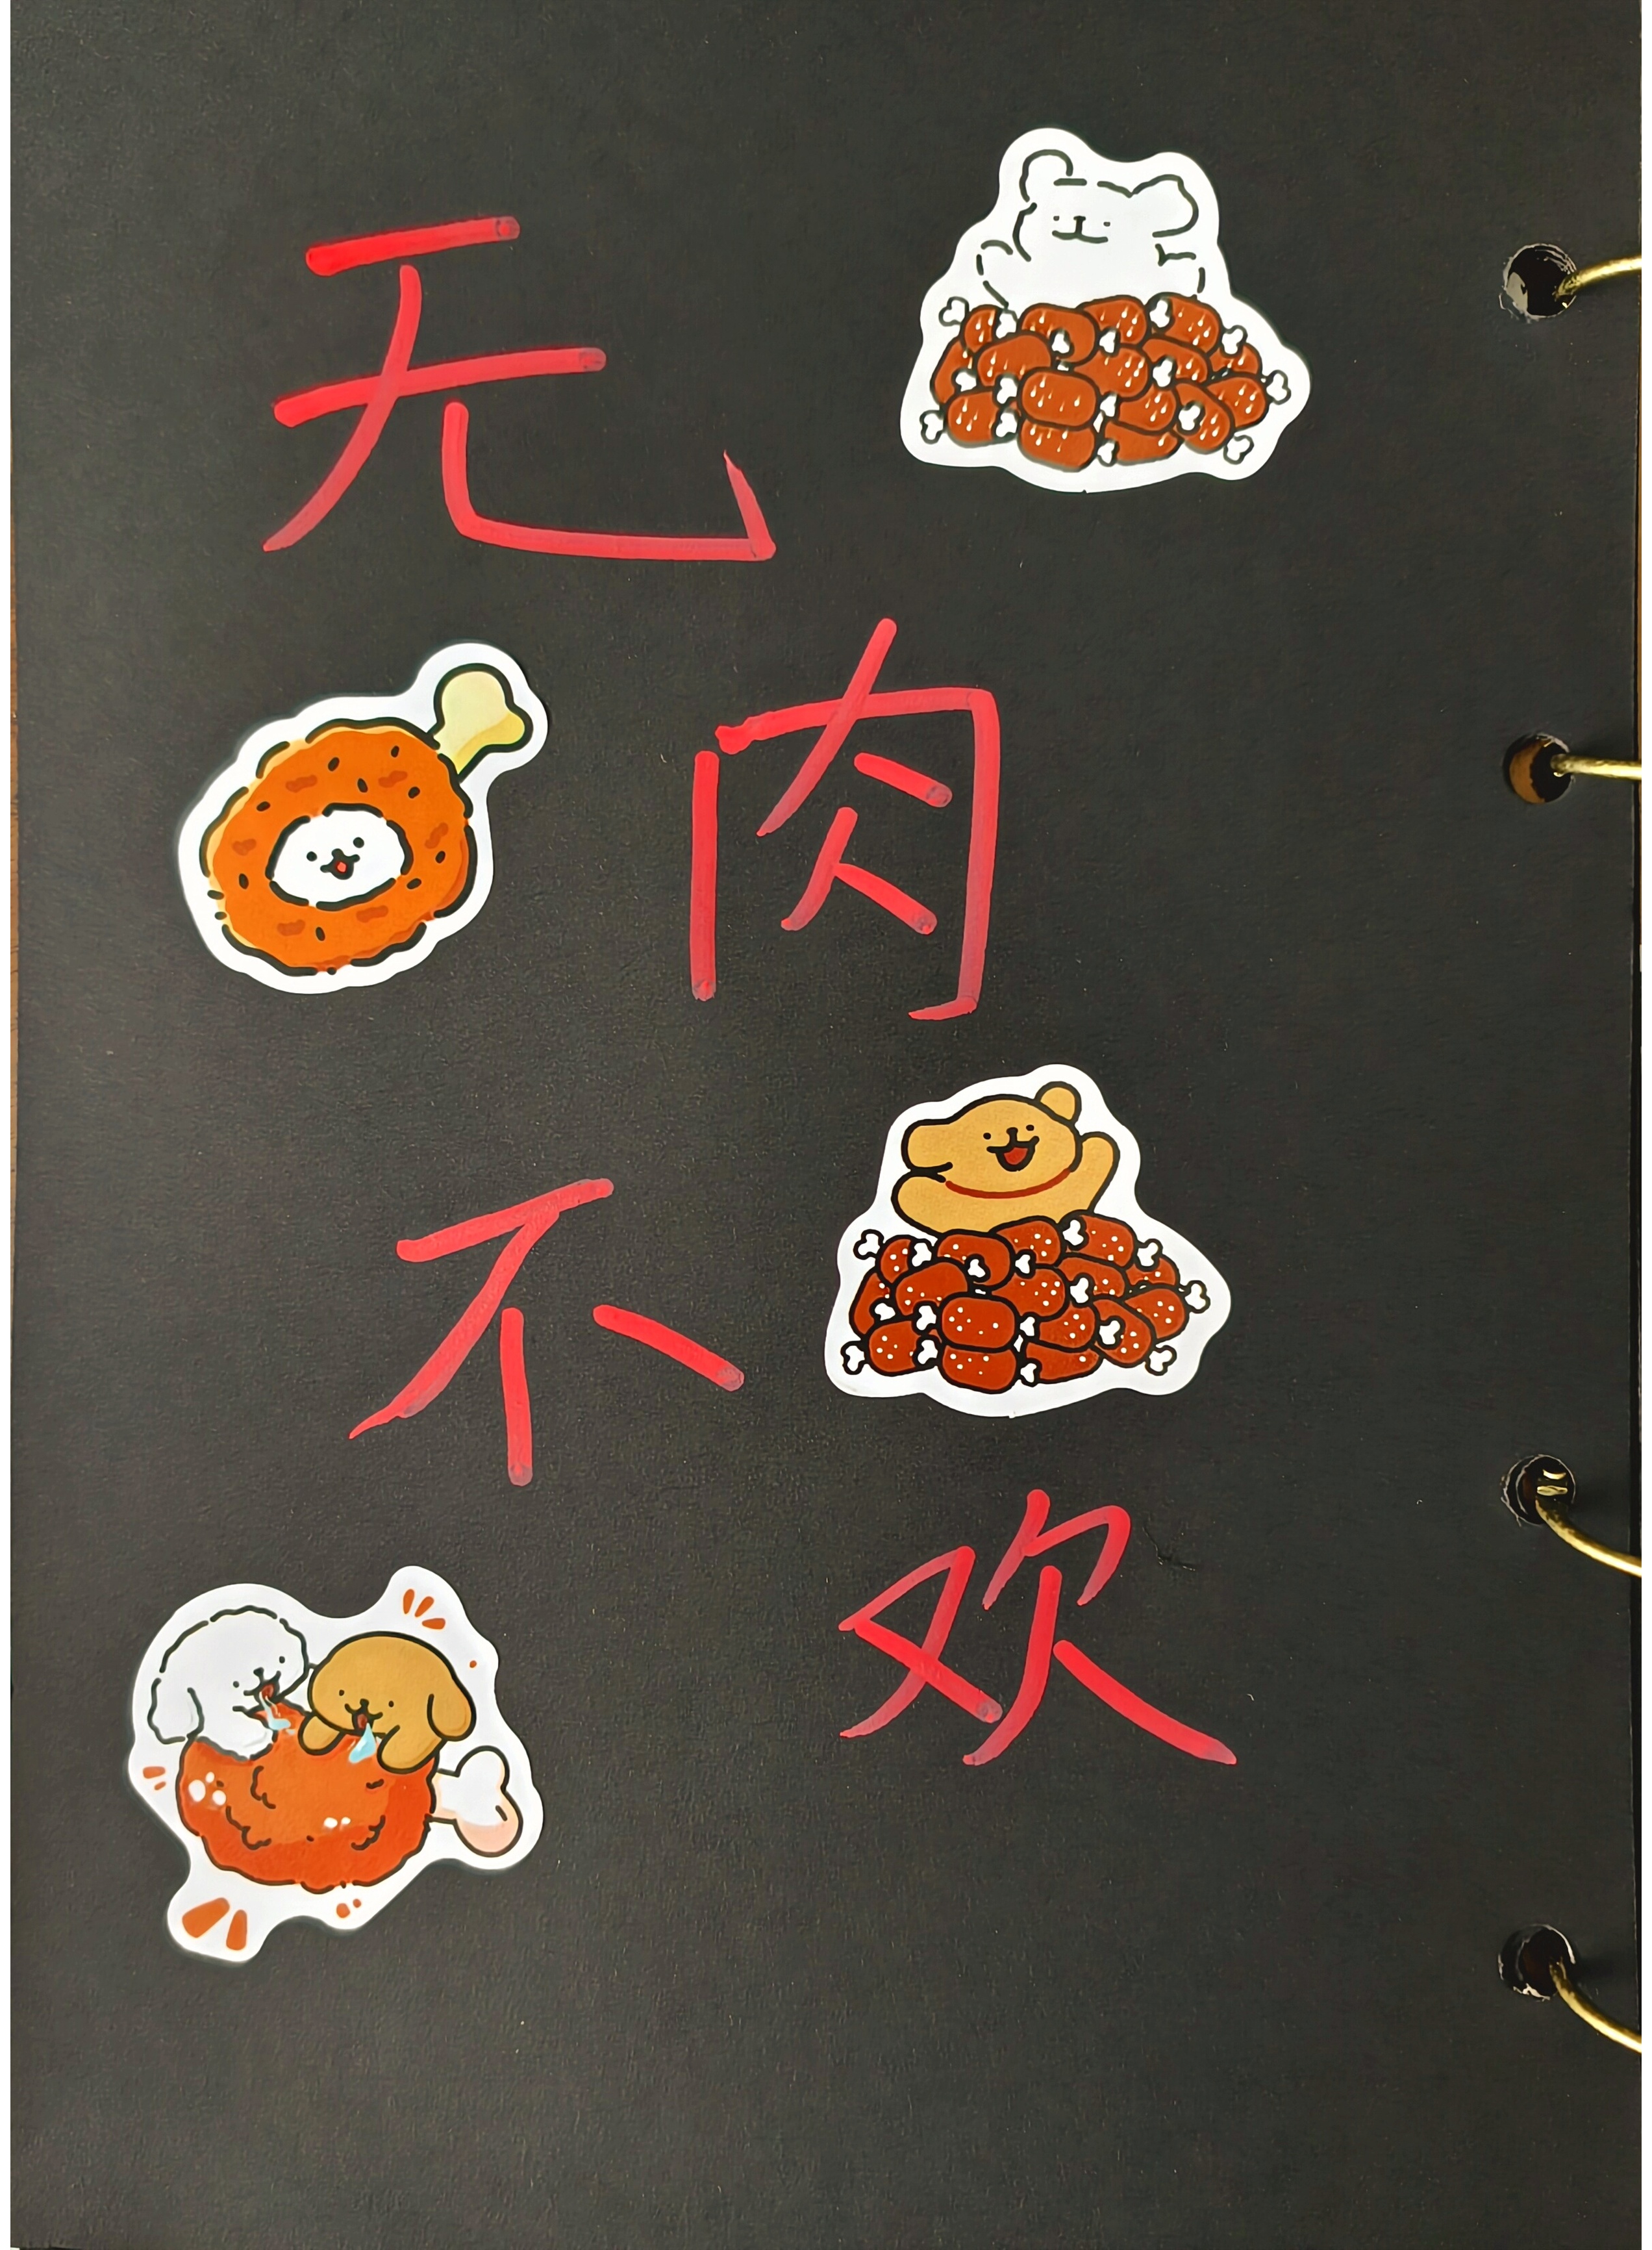 无
肉
不
欢